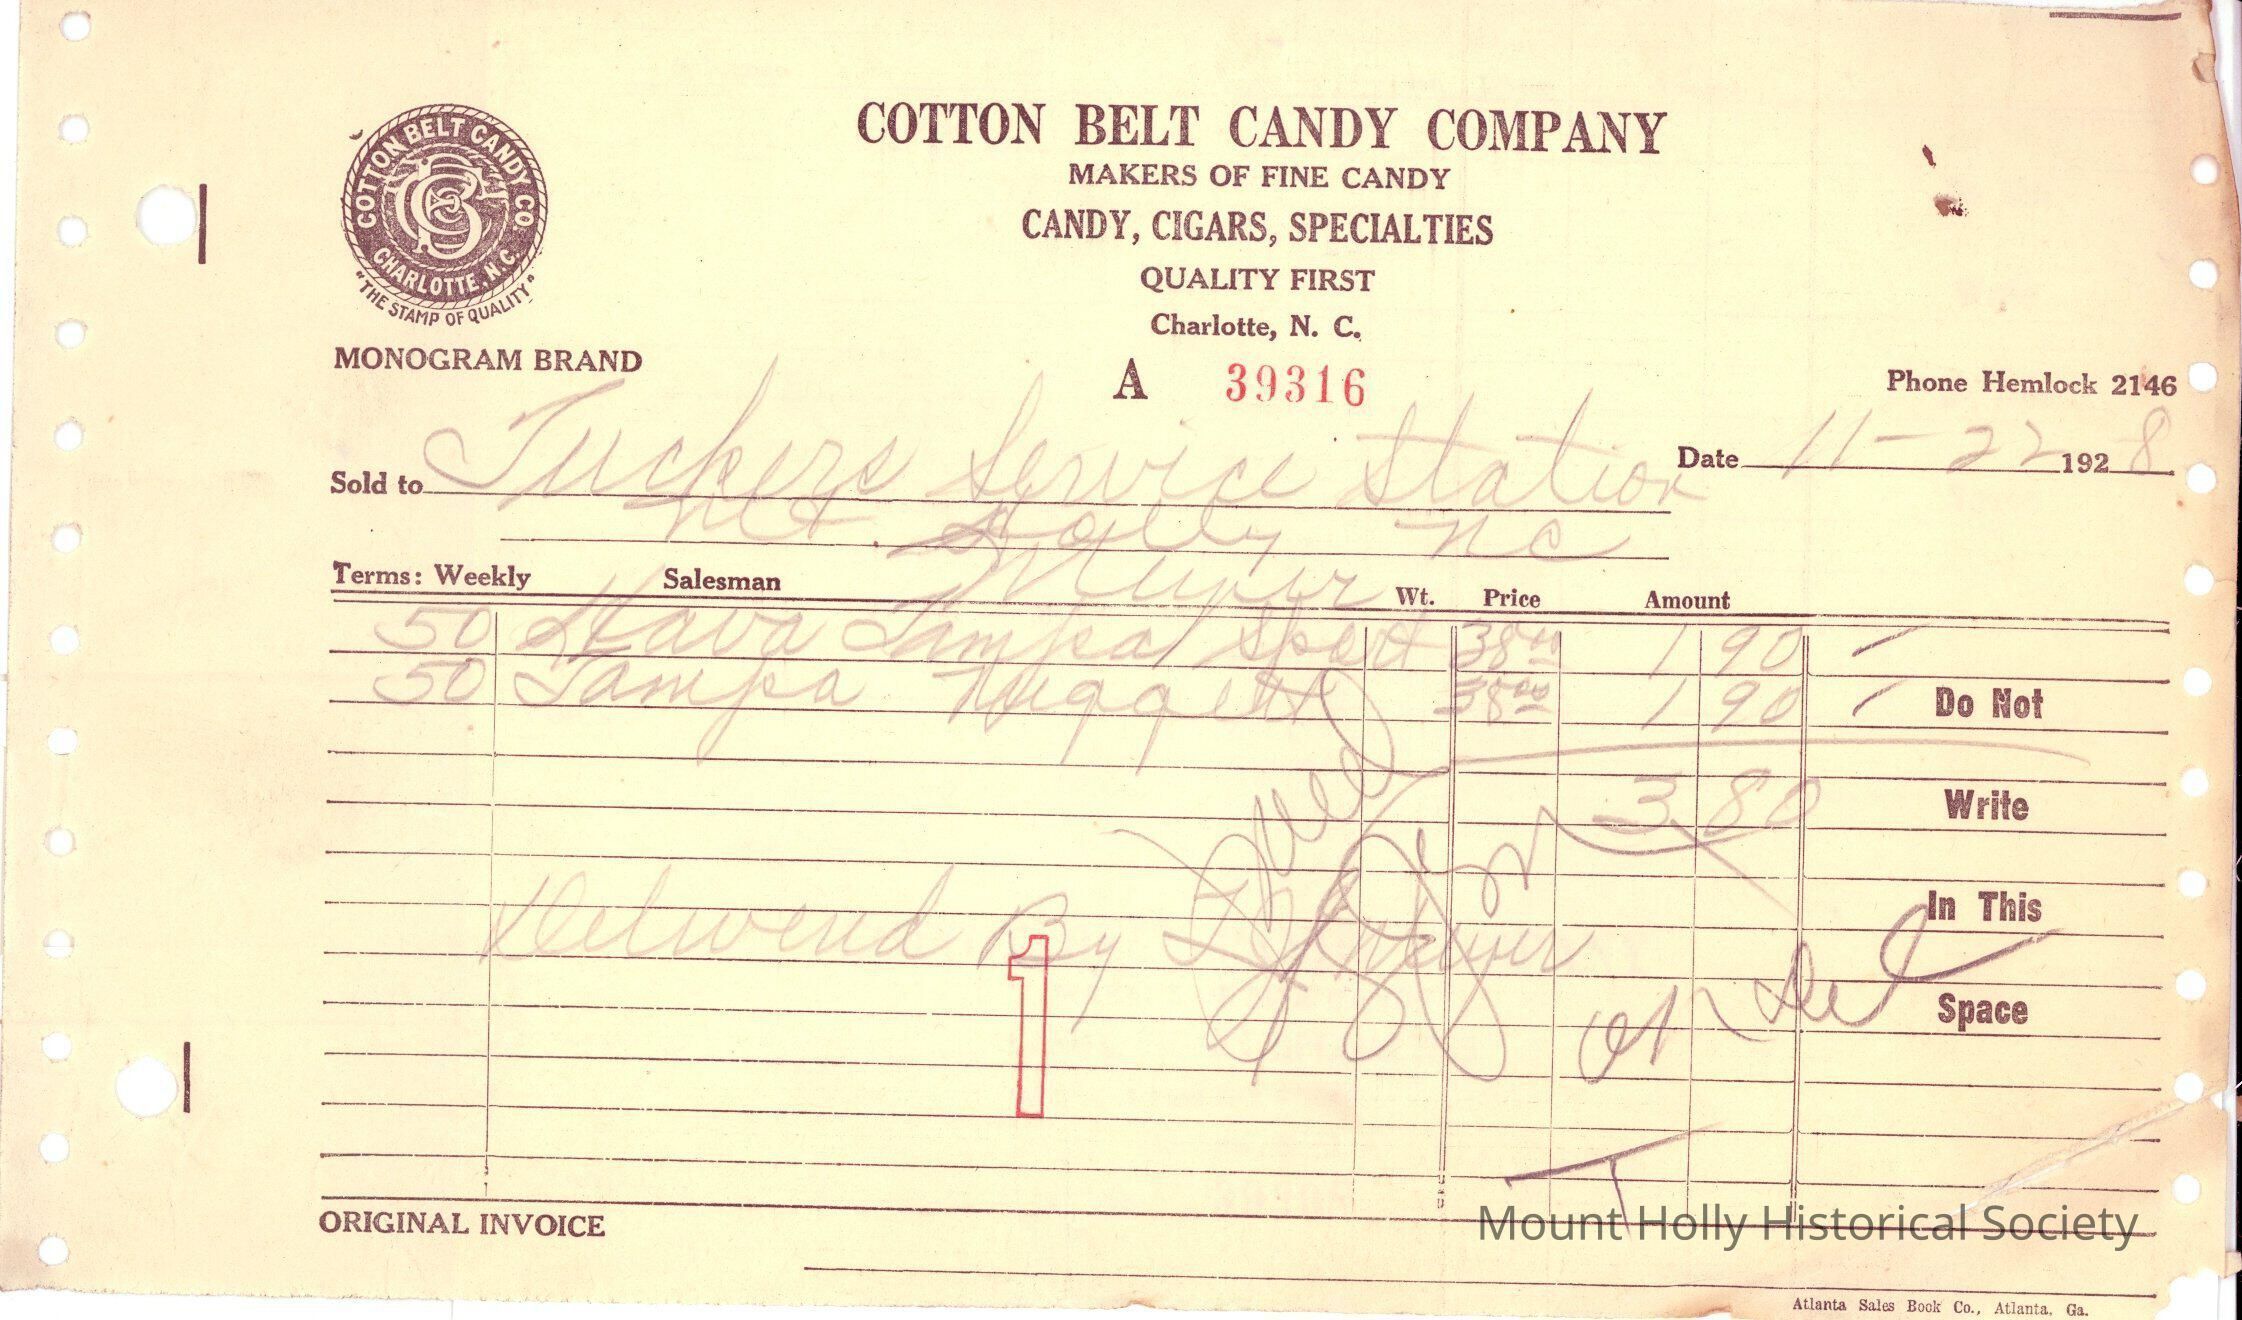 COTTON BELT CANDY CO
CHARLOTTE, N.C.
"THE STAMP OF QUALITY"
MONOGRAM BRAND
COTTON BELT CANDY COMPANY
MAKERS OF FINE CANDY
CANDY, CIGARS, SPECIALTIES
QUALITY FIRST
Charlotte, N. C.
A 39316
Phone Hemlock 2146
Date 11-22 1928
Sold to Tuckers Service Station
Mt. Holly NC
Terms: Weekly Salesman
Wt. Price Amount
50 Hava Tampa Sport 38 00 1 90
50 Tampa Nuggett 38 00 1 90
Do Not
3 80
Write
In This
By
Space
1
ORIGINAL INVOICE
Mount Holly Historical Society
Atlanta Sales Book Co., Atlanta, Ga.